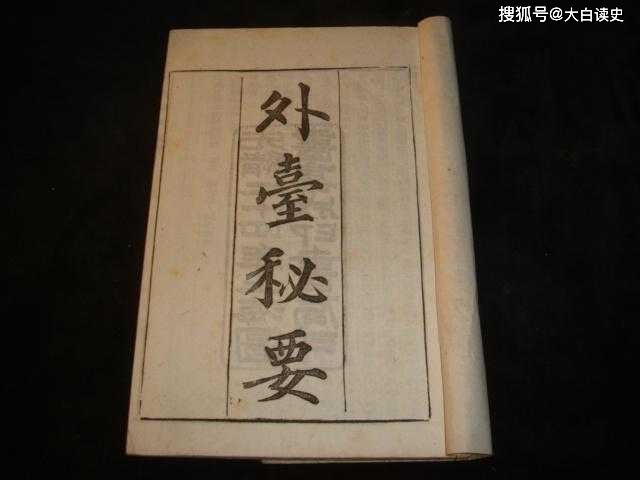 搜狐号@大白读史
外臺秘要